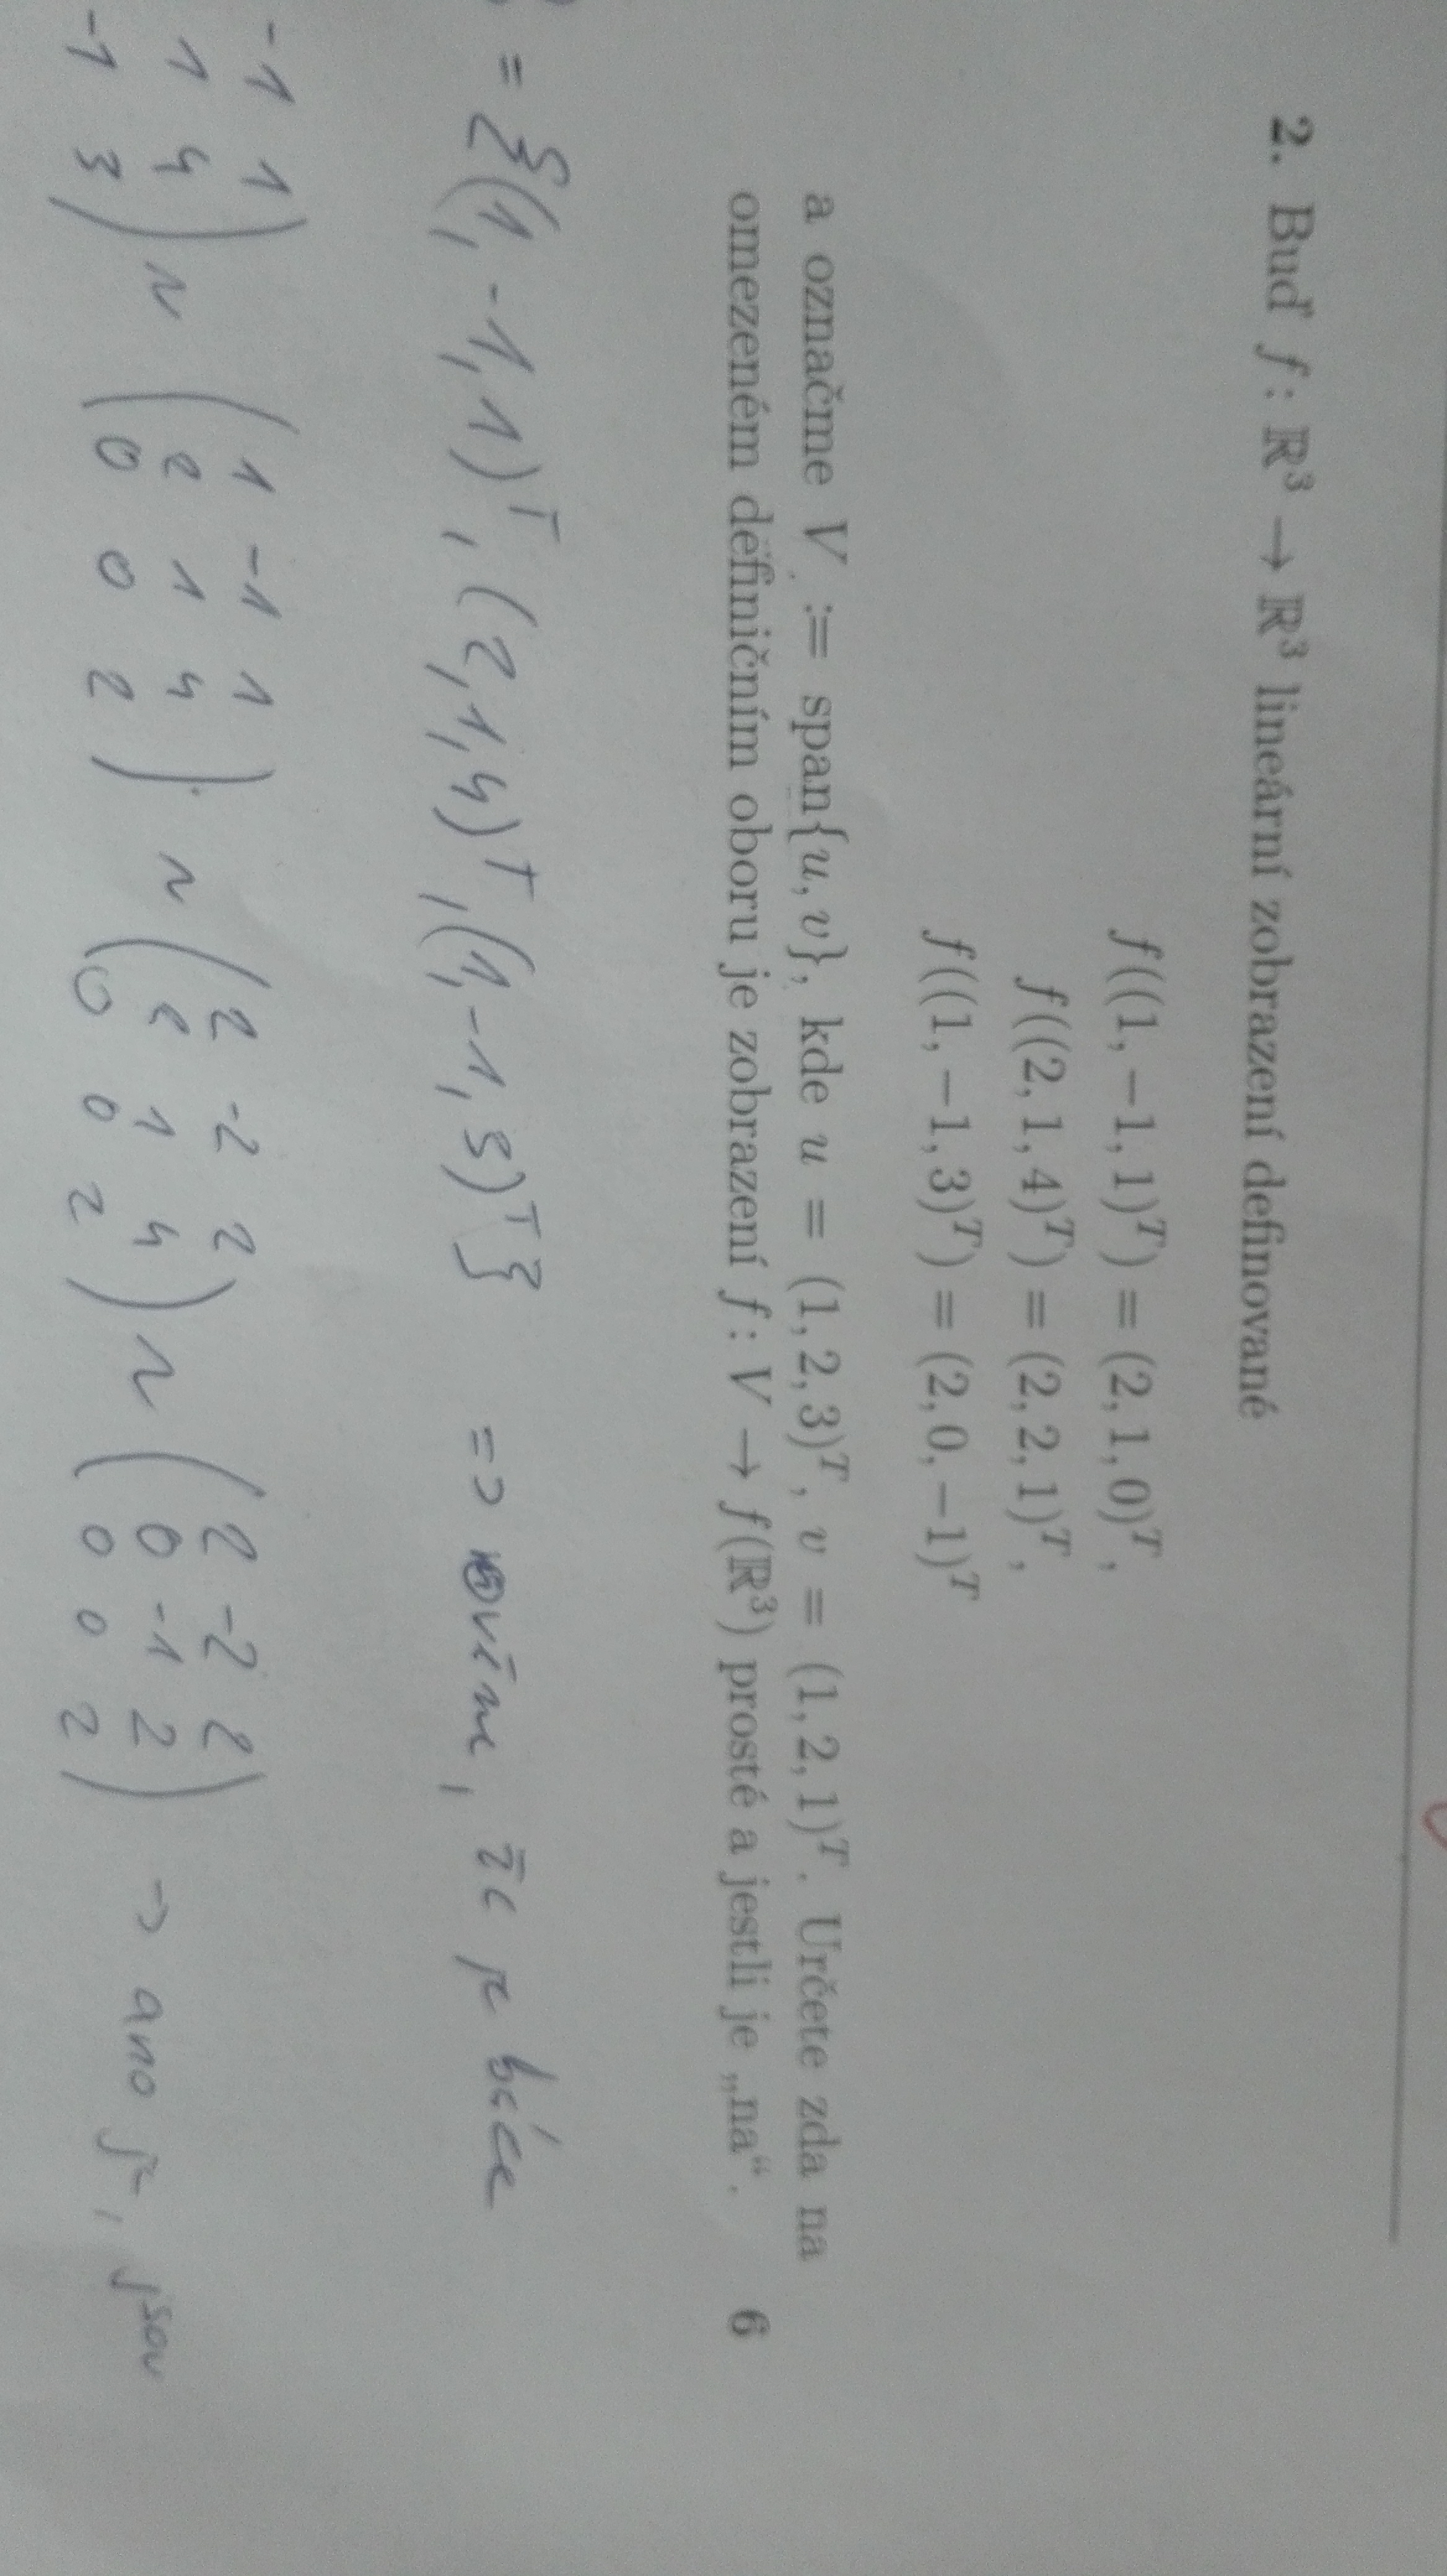 2. Buď f: ℝ³ → ℝ³ lineární zobrazení definované
f((1, −1, 1)ᵀ) = (2, 1, 0)ᵀ,
f((2, 1, 4)ᵀ) = (2, 2, 1)ᵀ,
f((1, −1, 3)ᵀ) = (2, 0, −1)ᵀ
a označme V := span{u, v}, kde u = (1, 2, 3)ᵀ, v = (1, 2, 1)ᵀ. Určete zda na
omezeném definičním oboru je zobrazení f: V → f(ℝ³) prosté a jestli je „na“. 6
= {(1, -1, 1)ᵀ, (2, 1, 4)ᵀ, (1, -1, 3)ᵀ} => ověřme, že je báze
-1 1 ( 1 -1 1 ( 2 -2 2 ( 2 -2 2
1 4 ) ~ 2 1 4 ) ~ 2 1 4 ) ~ 0 -1 2 ) -> ano je, jsou
-1 3 0 0 2 0 0 2 0 0 2